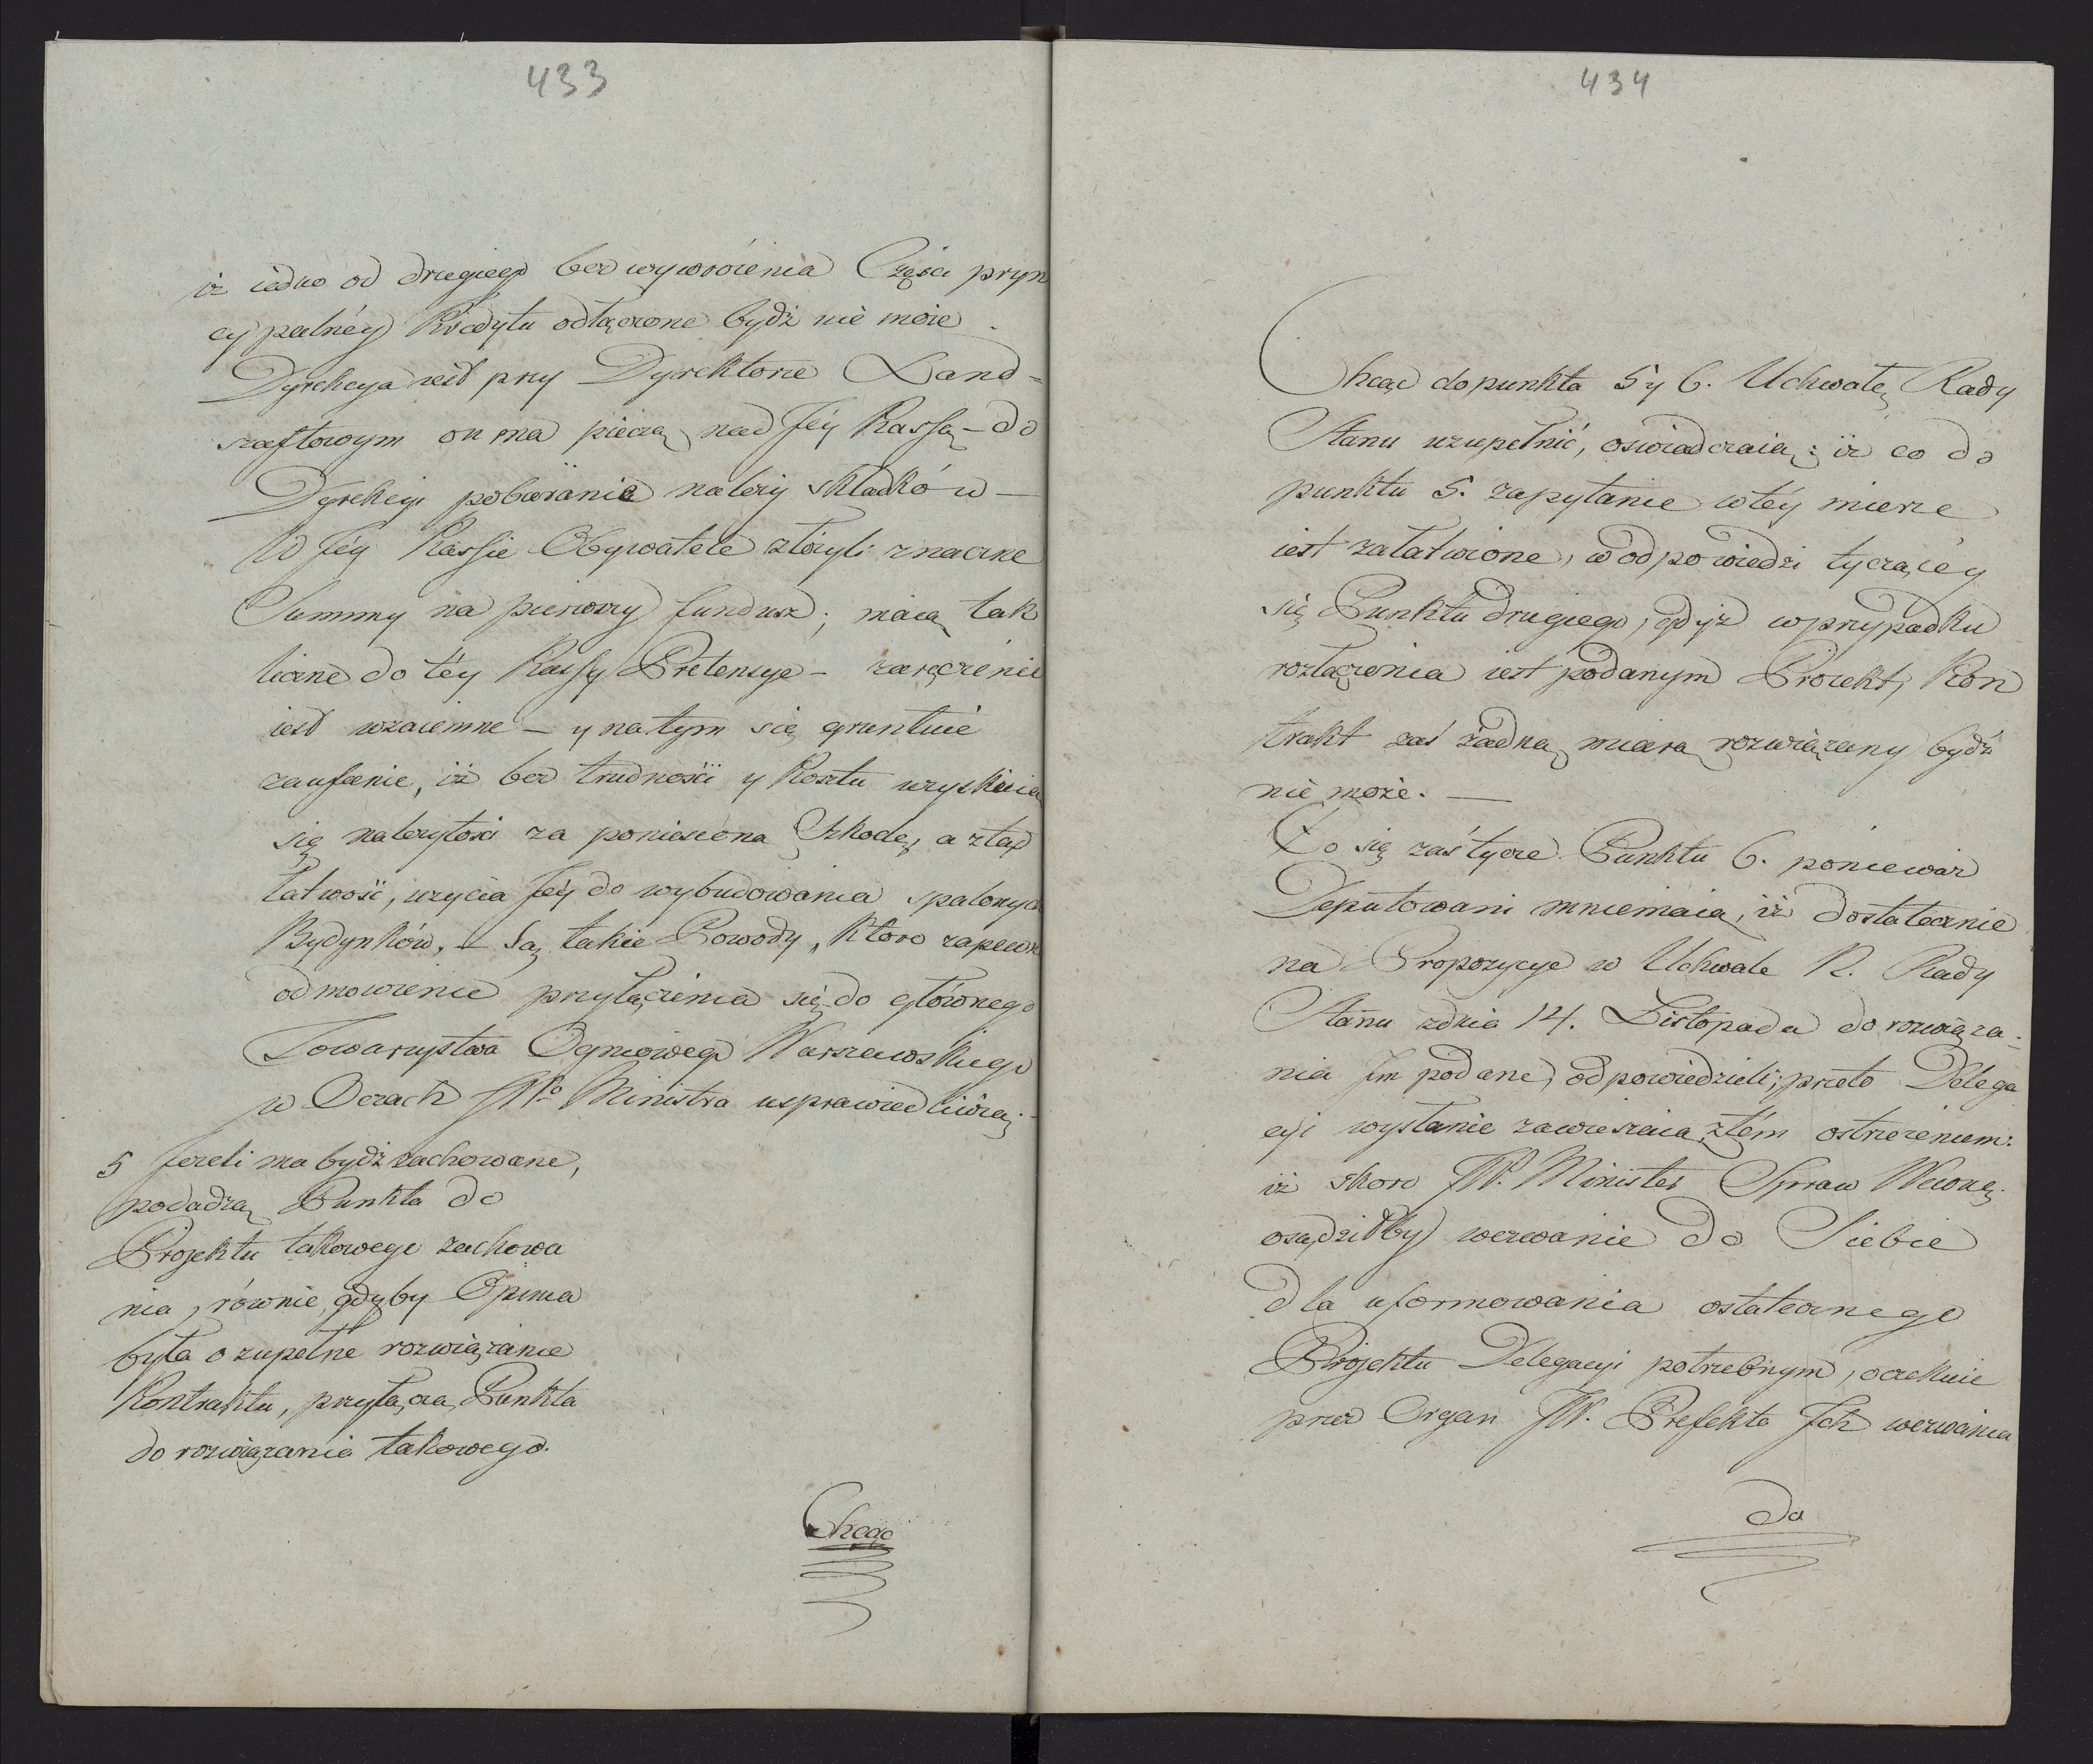 433
iż iedno od drugiego bez wywrócenia Części pryn
cypalnéy Kredytu odłączone bydź nie może.
Dyrekcya iest przy Dyrektorze Land-
szaftowym on ma pieczą nad Jéy Kassą - do
Dyrekcyi pobieranie należy składków -
W Jéy Kassie Obywatele złożyli znaczne
Summy na pierwszy fundusz; maią tak
liczne do téy Kassy Pretensye - zaręczenie
iest wzaiemne - y na tym się gruntuie
zaufanie, iż bez trudności y Kosztu uzyskuia
się należytości za poniesioną Szkodę, a ztąd
łatwość, użycia Jéy do wybudowania spalonych
Budynków. - Są takie Powody, które zapewne
odmowienie przyłączenia się do głównego
Towarzystwa Ogniowego Warszawskiego
w Oczach JWo Ministra usprawiedliwią.-
5 Jeżeli ma bydź zachowane,
podadzą Punkta do
Projektu takowego zachowa
nia, równie, gdyby Opinia
była o zupełne rozwiązanie
Kontraktu, przyłączą Punkta
do rozwiązania takowego.
Chcąc
434
Chcąc do punkta 5 y 6. Uchwałę Rady
Stanu uzupełnić, oświadczaią: iż co do
punktu 5. zapytanie w téy mierze
iest załatwione, w odpowiedzi tyczącéy
się Punktu drugiego, gdyż w przypadku
rozłączenia iest podanym Proiekt, Kon
trakt zaś żadną miarą rozwiązany bydź
nie może. -
Co się zaś tycze Punktu 6. ponieważ
Deputowani mniemaią, iż dostatecznie
na Propozycye w Uchwale R. Rady
Stanu z dnia 14. Listopada do rozwiąza-
nia Jm podane, odpowiedzieli; przeto Delega
cyi wysłanie zawieszaią, z tém ostrzeżeniem:
iż skoro JW. Minister Spraw Wewnę.
osądziłby wezwanie do Siebie
dla uformowania ostatecznego
Projektu Delegacyi potrzebnym, oczekuie
przez Organ JW. Prefekta Jch wezwania
do